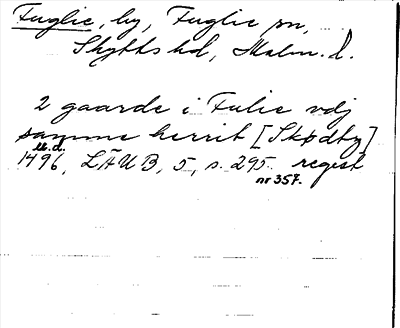 Fuglie, by, Fuglie sn,
Skytts hd, Malm. l.
2 gaarde i Fulie vdj
samme herrit [Skødby]
u.d.
1496, LÄUB, 5, s. 295. regest
nr 357.